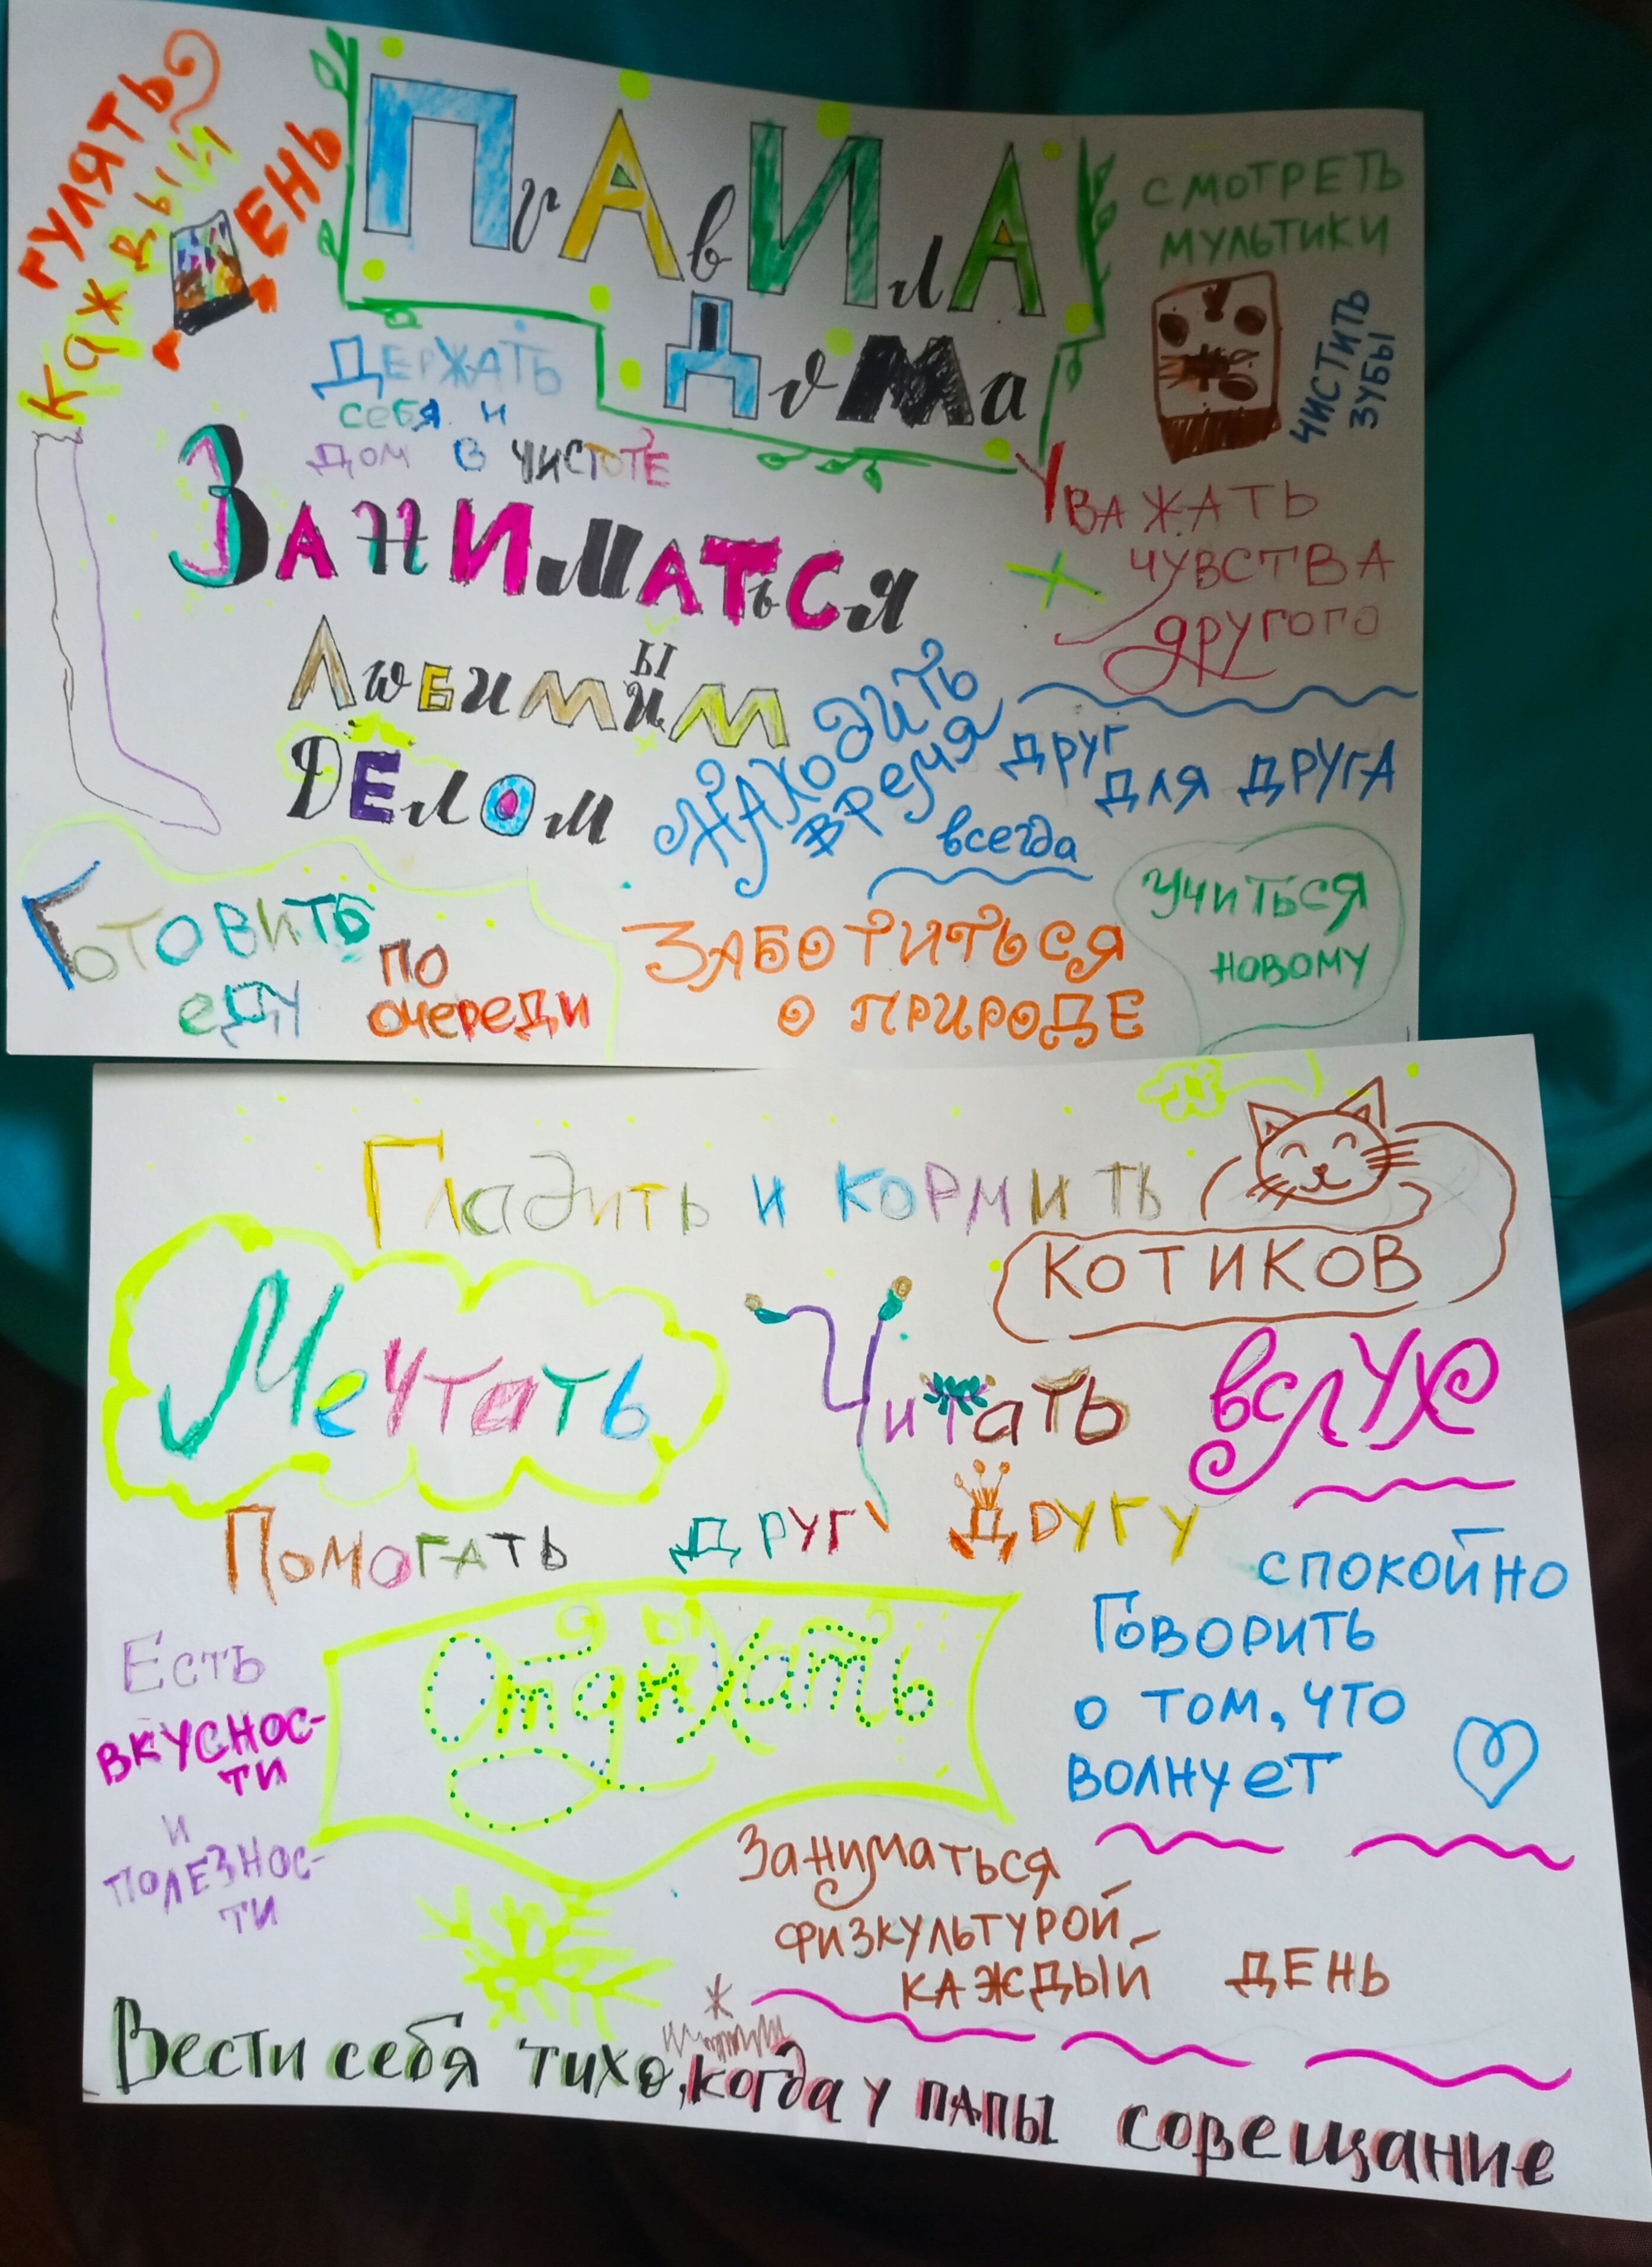 ПрАвИлА
Дома
ГУЛЯТЬ
Каждый
ДЕНЬ
СМОТРЕТЬ
МУЛЬТИКИ
ЧИСТИТЬ
ЗУБЫ
ДЕРЖАТЬ
себя и
дом в ЧИСТОТЕ
ЗАНИМАТЬСЯ
ЛюБиМЫМ
ДЕлОм
УВАЖАТЬ
ЧУВСТВА
ДРУГОГО
НАХОДИТЬ
ВРЕМЯ ДРУГ
ДЛЯ ДРУГА
всегда
Готовить
еДУ по
очереди
ЗАБОТИТЬСЯ
О ПРИРОДЕ
Учиться
новому
Гладить и кормить
КОТИКОВ
Мечтать
Читать вслух
Помогать друг другу
Есть
вкуснос-
ти
и
полезнос-
ти
Отдыхать
спокойно
Говорить
о том, что
волнует
Заниматься
физкультурой
каждый день
Вести себя тихо, когда у папы совещание